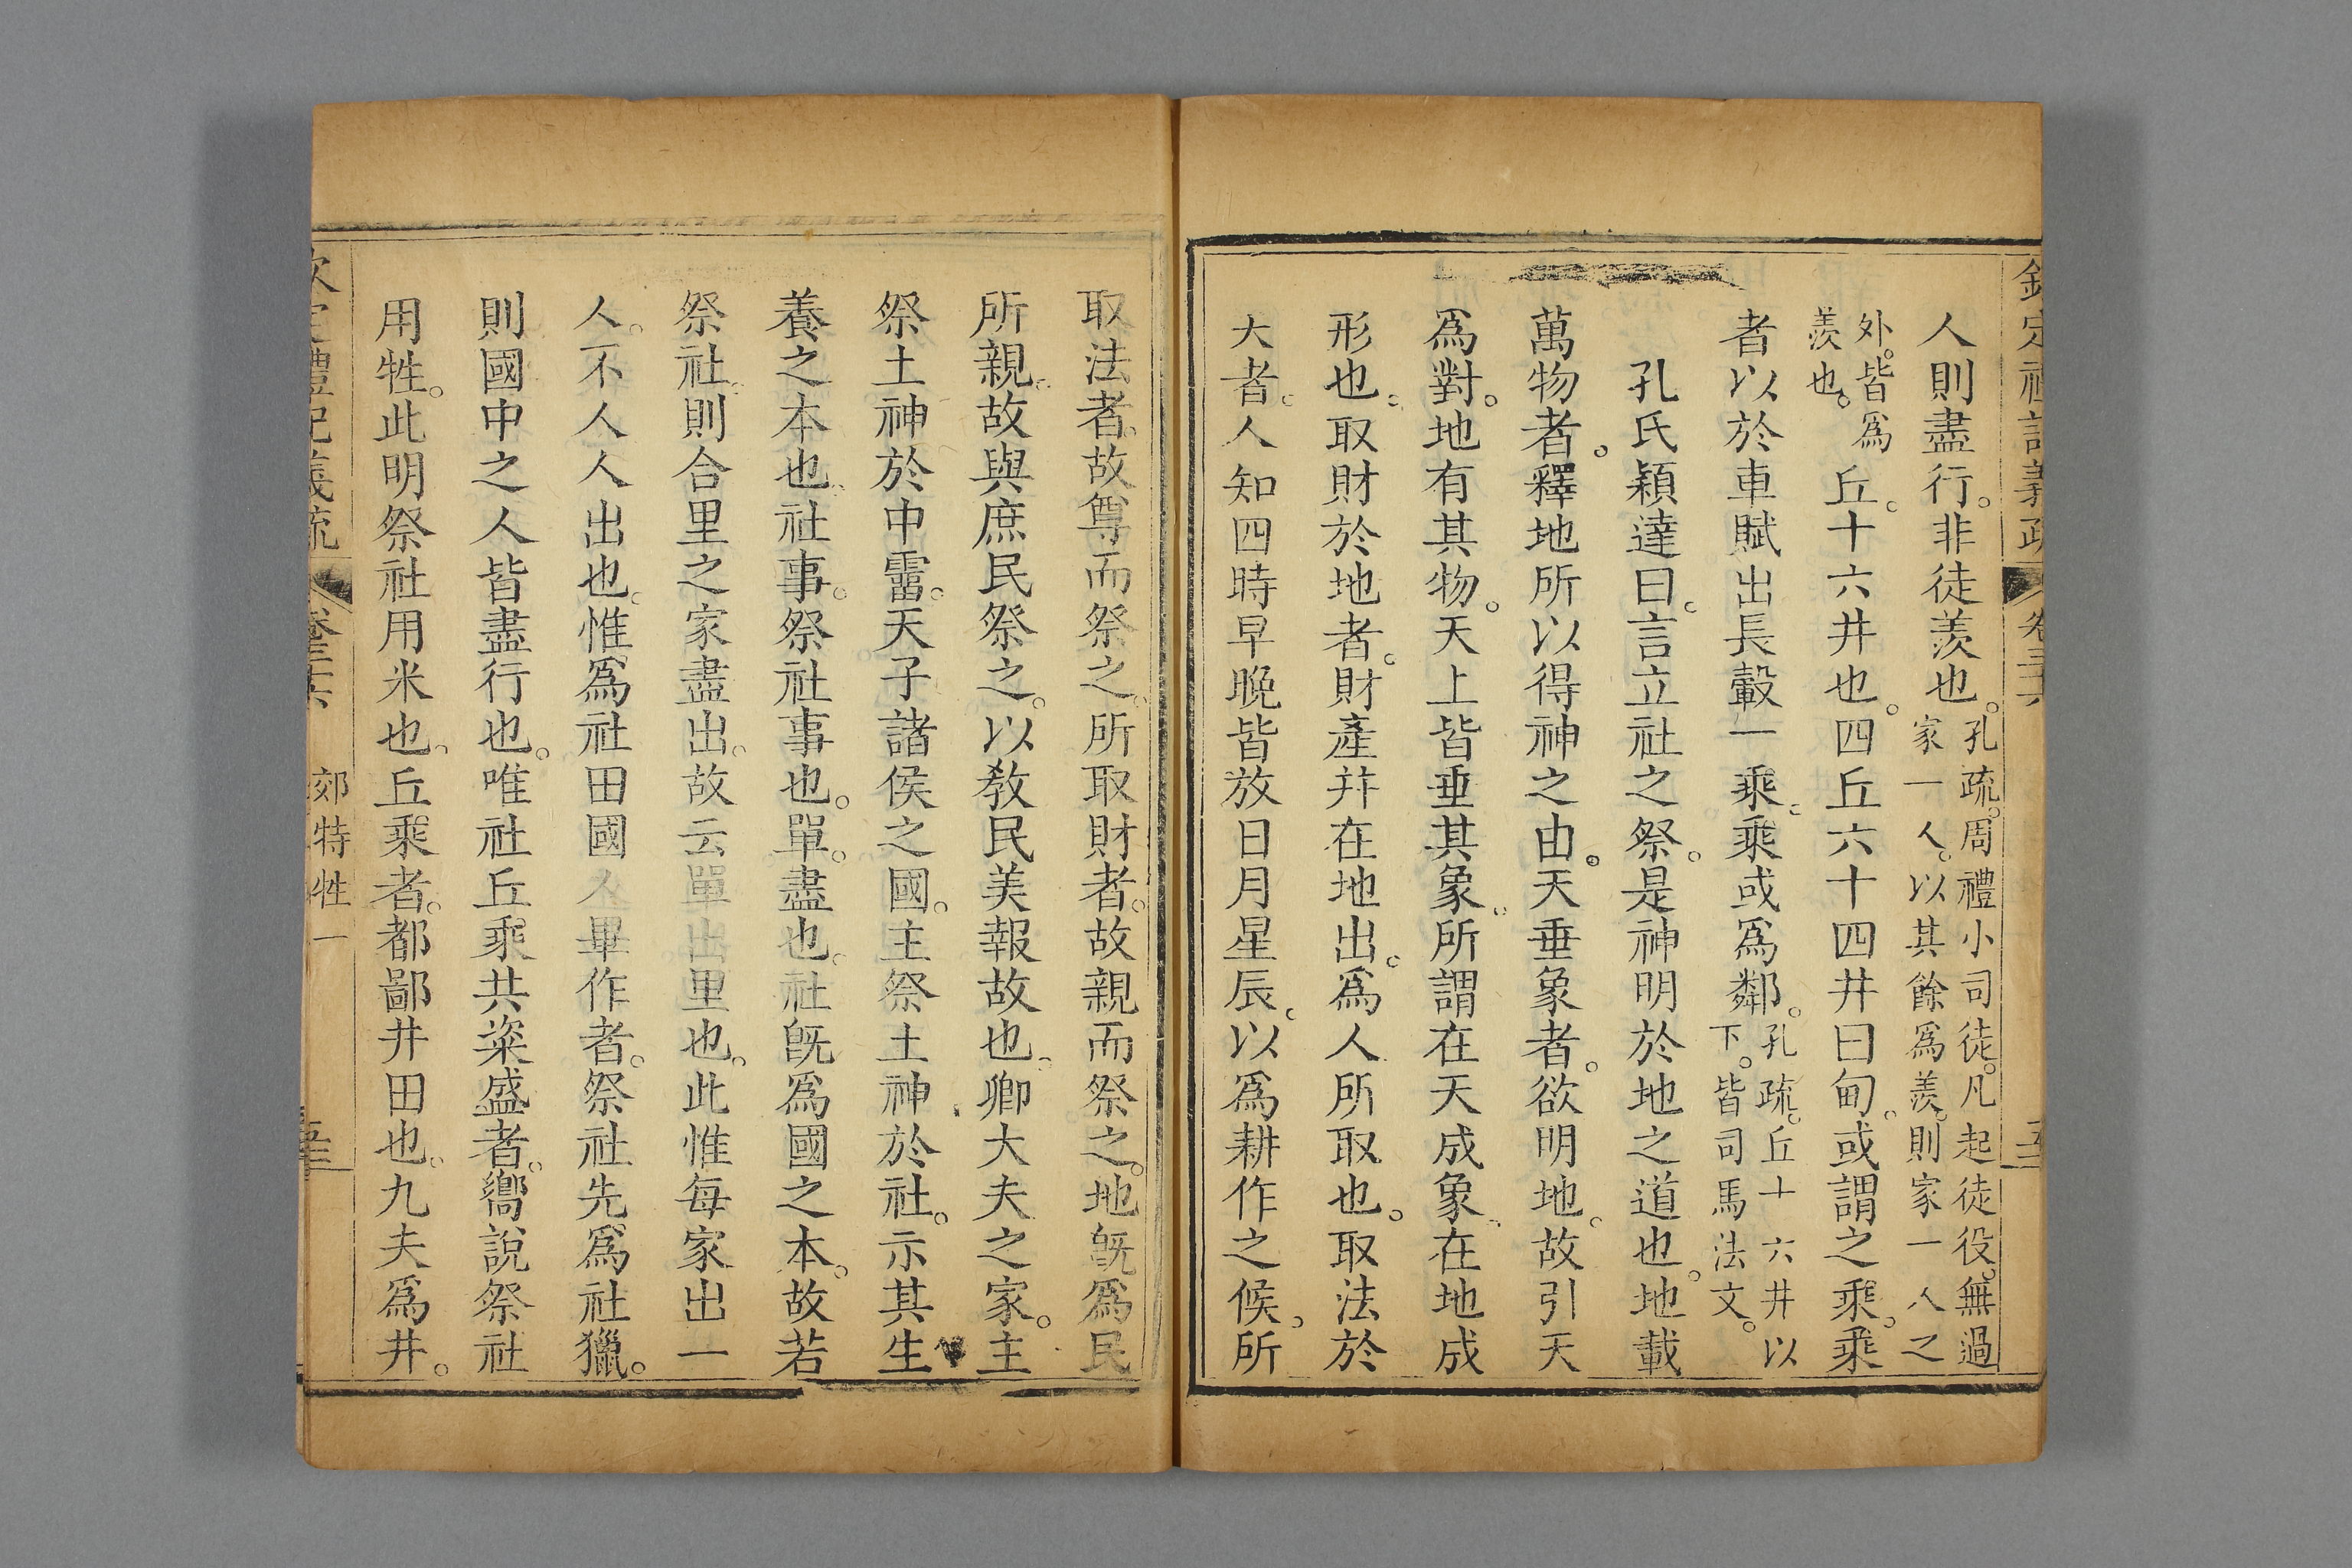 人則盡行。非徒羨也。孔疏。周禮小司徒。凡起徒役。無過家一人。以其餘爲羨。則家一人之
外。皆爲羨也。丘。十六井也。四丘六十四井曰甸。或謂之乘。乘
者以於車賦出長轂一乘。乘或爲鄰。孔疏。丘十六井以下。皆司馬法文。
孔氏穎達曰。言立社之祭。是神明於地之道也。地載
萬物者。釋地所以得神之由。天垂象者。欲明地。故引天
爲對。地有其物。天上皆垂其象。所謂在天成象。在地成
形也。取財於地者。財產幷在地出。爲人所取也。取法於
大者。人知四時早晚。皆放日月星辰。以爲耕作之候。所
取法者。故尊而祭之。所取財者。故親而祭之。地旣爲民
所親。故與庶民祭之。以敎民美報故也。卿大夫之家。主
祭土神於中霤。天子諸侯之國。主祭土神於社。示其生
養之本也。社事。祭社事也。單。盡也。社旣爲國之本。故若
祭社。則合里之家盡出。故云單出里也。此惟每家出一
人。不人人出也。惟爲社田國人畢作者。祭社先爲社獵。
則國中之人皆盡行也。唯社丘乘共粢盛者。嚮說祭社
用牲。此明祭社用米也。丘乘者。都鄙井田也。九夫爲井。
郊特牲一